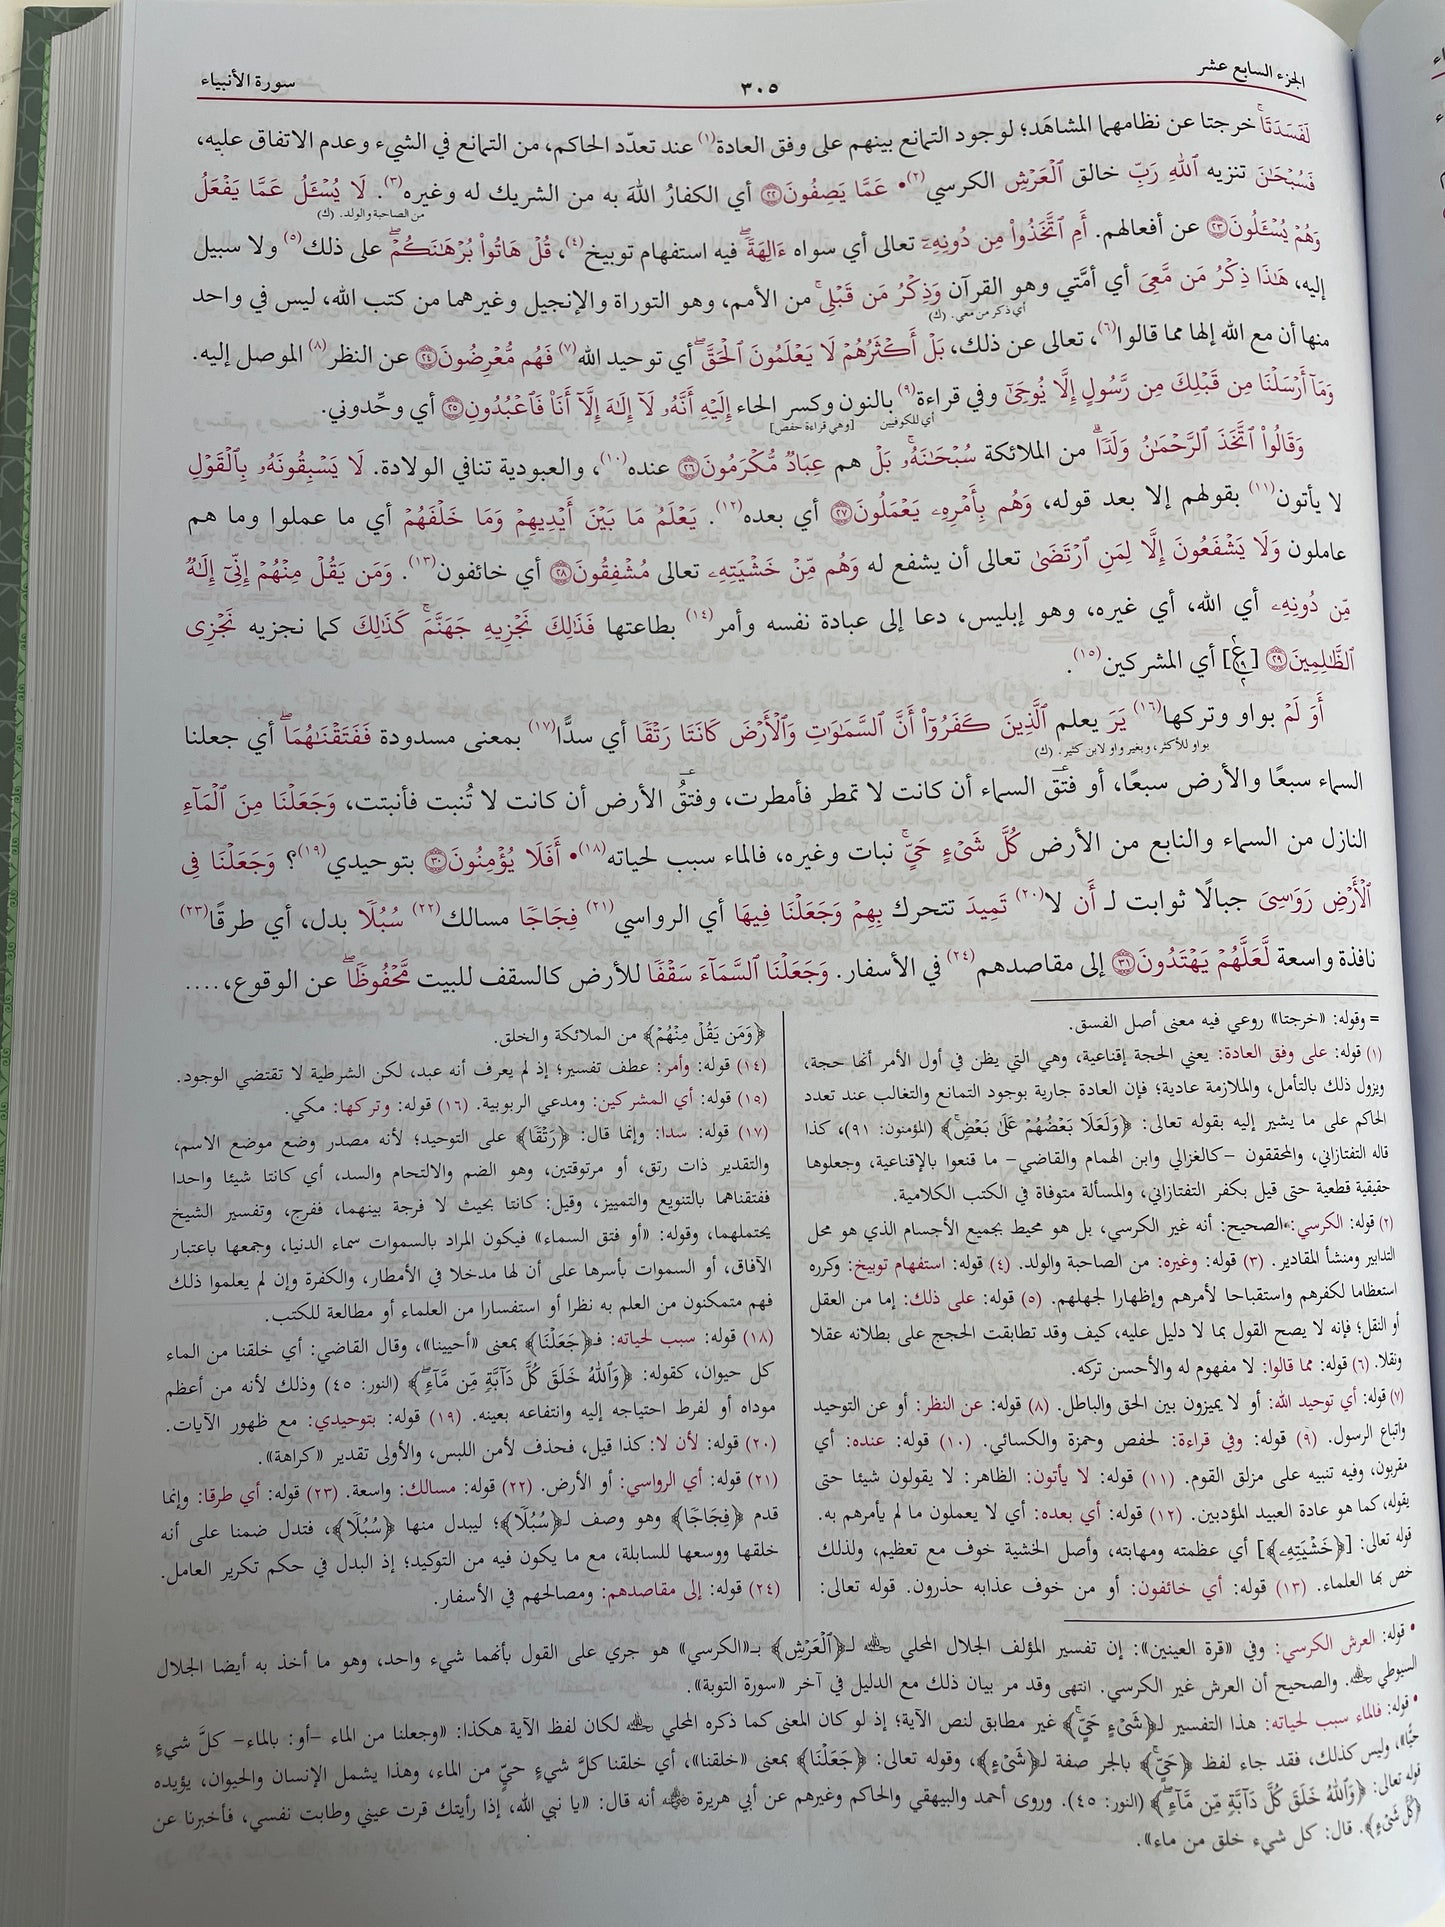 الجزء السابع عشر
٣٠٥
سورة الأنبياء
لَفَسَدَتَاۚ خرجتا عن نظامهما المشاهَد؛ لوجود التمانع بينهم على وفق العادة(١) عند تعدّد الحاكم، من التمانع في الشيء وعدم الاتفاق عليه،
فَسُبْحَٰنَ تنزيه ٱللَّهِ رَبِّ خالق ٱلْعَرْشِ الكرسي(٢)• عَمَّا يَصِفُونَ ٢٢ أي الكفارُ اللهَ به من الشريك له وغيره(٣). لَا يُسْـَٔلُ عَمَّا يَفْعَلُ
من الصاحبة والولد. (ك)
وَهُمْ يُسْـَٔلُونَ ٢٣ عن أفعالهم. أَمِ ٱتَّخَذُوا۟ مِن دُونِهِۦٓ تعالى أي سواه ءَالِهَةًۖ فيه استفهام توبيخ(٤)، قُلْ هَاتُوا۟ بُرْهَٰنَكُمْۖ على ذلك(٥) ولا سبيل
إليه، هَٰذَا ذِكْرُ مَن مَّعِىَ أي أمَّتي وهو القرآن وَذِكْرُ مَن قَبْلِىۚ من الأمم، وهو التوراة والإنجيل وغيرهما من كتب الله، ليس في واحد
أي ذكر من معي. (ك)
منها أن مع الله إلها مما قالوا(٦)، تعالى عن ذلك، بَلْ أَكْثَرُهُمْ لَا يَعْلَمُونَ ٱلْحَقَّۖ أي توحيد الله(٧) فَهُم مُّعْرِضُونَ ٢٤ عن النظر(٨) الموصل إليه.
وَمَآ أَرْسَلْنَا مِن قَبْلِكَ مِن رَّسُولٍ إِلَّا يُوحَىٰٓ وفي قراءة(٩) بالنون وكسر الحاء إِلَيْهِ أَنَّهُۥ لَآ إِلَٰهَ إِلَّآ أَنَا۠ فَٱعْبُدُونِ ٢٥ أي وحِّدوني.
أي للكوفيين
[وهي قراءة حفص]
وَقَالُوا۟ ٱتَّخَذَ ٱلرَّحْمَٰنُ وَلَدًاۗ من الملائكة سُبْحَٰنَهُۥۚ بَلْ هم عِبَادٌ مُّكْرَمُونَ ٢٦ عنده(١٠)، والعبودية تنافي الولادة. لَا يَسْبِقُونَهُۥ بِٱلْقَوْلِ
لا يأتون(١١) بقولهم إلا بعد قوله، وَهُم بِأَمْرِهِۦ يَعْمَلُونَ ٢٧ أي بعده(١٢). يَعْلَمُ مَا بَيْنَ أَيْدِيهِمْ وَمَا خَلْفَهُمْ أي ما عملوا وما هم
عاملون وَلَا يَشْفَعُونَ إِلَّا لِمَنِ ٱرْتَضَىٰ تعالى أن يشفع له وَهُم مِّنْ خَشْيَتِهِۦ تعالى مُشْفِقُونَ ٢٨ أي خائفون(١٣). وَمَن يَقُلْ مِنْهُمْ إِنِّىٓ إِلَٰهٌ
مِّن دُونِهِۦ أي الله، أي غيره، وهو إبليس، دعا إلى عبادة نفسه وأمر(١٤) بطاعتها فَذَٰلِكَ نَجْزِيهِ جَهَنَّمَۚ كَذَٰلِكَ كما نجزيه نَجْزِى
ٱلظَّٰلِمِينَ ٢٩ [ع] أي المشركين(١٥).
أَوَ لَمْ بواو وتركها(١٦) يَرَ يعلم ٱلَّذِينَ كَفَرُوٓا۟ أَنَّ ٱلسَّمَٰوَٰتِ وَٱلْأَرْضَ كَانَتَا رَتْقًا أي سدًّا(١٧) بمعنى مسدودة فَفَتَقْنَٰهُمَاۖ أي جعلنا
بواو للأكثر، وبغير واو لابن كثير. (ك)
السماء سبعًا والأرض سبعًا، أو فتقَ السماء أن كانت لا تمطر فأمطرت، وفتقُ الأرض أن كانت لا تُنبت فأنبتت، وَجَعَلْنَا مِنَ ٱلْمَآءِ
النازل من السماء والنابع من الأرض كُلَّ شَىْءٍ حَىٍّۚ نبات وغيره، فالماء سبب لحياته(١٨)• أَفَلَا يُؤْمِنُونَ ٣٠ بتوحيدي(١٩)؟ وَجَعَلْنَا فِى
ٱلْأَرْضِ رَوَٰسِىَ جبالًا ثوابت لـ أَن لا(٢٠) تَمِيدَ تتحرك بِهِمْ وَجَعَلْنَا فِيهَا أي الرواسي(٢١) فِجَاجًا مسالك(٢٢) سُبُلًا بدل، أي طرقًا(٢٣)
نافذة واسعة لَّعَلَّهُمْ يَهْتَدُونَ ٣١ إلى مقاصدهم(٢٤) في الأسفار. وَجَعَلْنَا ٱلسَّمَآءَ سَقْفًا للأرض كالسقف للبيت مَّحْفُوظًاۖ عن الوقوع، ....
= وقوله: «خرجتا» روعي فيه معنى أصل الفسق.
(١) قوله: على وفق العادة: يعني الحجة إقناعية، وهي التي يظن في أول الأمر أنها حجة،
ويزول ذلك بالتأمل، والملازمة عادية؛ فإن العادة جارية بوجود التمانع والتغالب عند تعدد
الحاكم على ما يشير إليه بقوله تعالى: ﴿وَلَعَلَا بَعْضُهُمْ عَلَىٰ بَعْضٍۚ﴾ (المؤمنون: ٩١)، كذا
قاله التفتازاني، والمحققون –كالغزالي وابن الهمام والقاضي– ما قنعوا بالإقناعية، وجعلوها
حقيقية قطعية حتى قيل بكفر التفتازاني، والمسألة متوفاة في الكتب الكلامية.
(٢) قوله: الكرسي: الصحيح: أنه غير الكرسي، بل هو محيط بجميع الأجسام الذي هو محل
التدابير ومنشأ المقادير. (٣) قوله: وغيره: من الصاحبة والولد. (٤) قوله: استفهام توبيخ: وكرره
استعظاما لكفرهم واستقباحا لأمرهم وإظهارا لجهلهم. (٥) قوله: على ذلك: إما من العقل
أو النقل؛ فإنه لا يصح القول بما لا دليل عليه، كيف وقد تطابقت الحجج على بطلانه عقلا
ونقلا. (٦) قوله: مما قالوا: لا مفهوم له والأحسن تركه.
(٧) قوله: أي توحيد الله: أو لا يميزون بين الحق والباطل. (٨) قوله: عن النظر: أو عن التوحيد
واتباع الرسول. (٩) قوله: وفي قراءة: لحفص وحمزة والكسائي. (١٠) قوله: عنده: أي
مقربون، وفيه تنبيه على مزلق القوم. (١١) قوله: لا يأتون: الظاهر: لا يقولون شيئا حتى
يقوله، كما هو عادة العبيد المؤدبين. (١٢) قوله: أي بعده: أي لا يعملون ما لم يأمرهم به.
قوله تعالى: [﴿خَشْيَتِهِۦ﴾] أي عظمته ومهابته، وأصل الخشية خوف مع تعظيم، ولذلك
خص بها العلماء. (١٣) قوله: أي خائفون: أو من خوف عذابه حذرون. قوله تعالى:
﴿وَمَن يَقُلْ مِنْهُمْ﴾ من الملائكة والخلق.
(١٤) قوله: وأمر: عطف تفسير؛ إذ لم يعرف أنه عبد، لكن الشرطية لا تقتضي الوجود.
(١٥) قوله: أي المشركين: ومدعي الربوبية. (١٦) قوله: وتركها: مكي.
(١٧) قوله: سدا: وإنما قال: ﴿رَتْقًا﴾ على التوحيد؛ لأنه مصدر وضع موضع الاسم،
والتقدير ذات رتق، أو مرتوقتين، وهو الضم والالتحام والسد، أي كانتا شيئا واحدا
ففتقناهما بالتنويع والتمييز، وقيل: كانتا بحيث لا فرجة بينهما، ففرج، وتفسير الشيخ
يحتملهما، وقوله: «أو فتق السماء» فيكون المراد بالسموات سماء الدنيا، وجمعها باعتبار
الآفاق، أو السموات بأسرها على أن لها مدخلا في الأمطار، والكفرة وإن لم يعلموا ذلك
فهم متمكنون من العلم به نظرا أو استفسارا من العلماء أو مطالعة للكتب.
(١٨) قوله: سبب لحياته: فـ﴿جَعَلْنَا﴾ بمعنى «أحيينا»، وقال القاضي: أي خلقنا من الماء
كل حيوان، كقوله: ﴿وَٱللَّهُ خَلَقَ كُلَّ دَآبَّةٍ مِّن مَّآءٍۖ﴾ (النور: ٤٥) وذلك لأنه من أعظم
موداه أو لفرط احتياجه إليه وانتفاعه بعينه. (١٩) قوله: بتوحيدي: مع ظهور الآيات.
(٢٠) قوله: لأن لا: كذا قيل، فحذف لأمن اللبس، والأولى تقدير «كراهة».
(٢١) قوله: أي الرواسي: أو الأرض. (٢٢) قوله: مسالك: واسعة. (٢٣) قوله: أي طرقا: وإنما
قدم ﴿فِجَاجًا﴾ وهو وصف لـ﴿سُبُلًا﴾؛ ليبدل منها ﴿سُبُلًا﴾، فتدل ضمنا على أنه
خلقها ووسعها للسابلة، مع ما يكون فيه من التوكيد؛ إذ البدل في حكم تكرير العامل.
(٢٤) قوله: إلى مقاصدهم: ومصالحهم في الأسفار.
• قوله: العرش الكرسي: وفي «قرة العينين»: إن تفسير المؤلف الجلال المحلي رحمه الله لـ﴿ٱلْعَرْشِ﴾ بـ«الكرسي» هو جري على القول بأنهما شيء واحد، وهو ما أخذ به أيضا الجلال
السيوطي رحمه الله. والصحيح أن العرش غير الكرسي. انتهى وقد مر بيان ذلك مع الدليل في آخر «سورة التوبة».
• قوله: فالماء سبب لحياته: هذا التفسير لـ﴿شَىْءٍ حَىٍّۚ﴾ غير مطابق لنص الآية؛ إذ لو كان المعنى كما ذكره المحلي رحمه الله لكان لفظ الآية هكذا: «وجعلنا من الماء –أو: بالماء– كلَّ شيءٍ
حيًّا»، وليس كذلك، فقد جاء لفظ ﴿حَىٍّۚ﴾ بالجر صفة لـ﴿شَىْءٍ﴾، وقوله تعالى: ﴿جَعَلْنَا﴾ بمعنى «خلقنا»، أي خلقنا كلَّ شيءٍ حيٍّ من الماء، وهذا يشمل الإنسان والحيوان، يؤيده
قوله تعالى: ﴿وَٱللَّهُ خَلَقَ كُلَّ دَآبَّةٍ مِّن مَّآءٍۖ﴾ (النور: ٤٥). وروى أحمد والبيهقي والحاكم وغيرهم عن أبي هريرة رضي الله عنه أنه قال: «يا نبي الله، إذا رأيتك قرت عيني وطابت نفسي، فأخبرنا عن
﴿كُلَّ شَىْءٍ﴾. قال: كل شيء خلق من ماء».